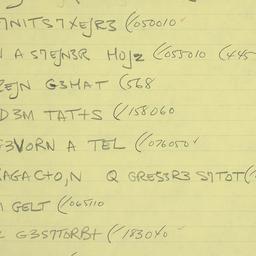 7NITS7XEJR3 (050010
A S7EJN3R HOJ2 (055010 (445
REJN G3HAT (568
D3M TATTS (158060
G3VORN A TEL (076050
AGACTO,N Q GRESSR3 SITOT(
GELT (065110
G3STTDRBT (183040